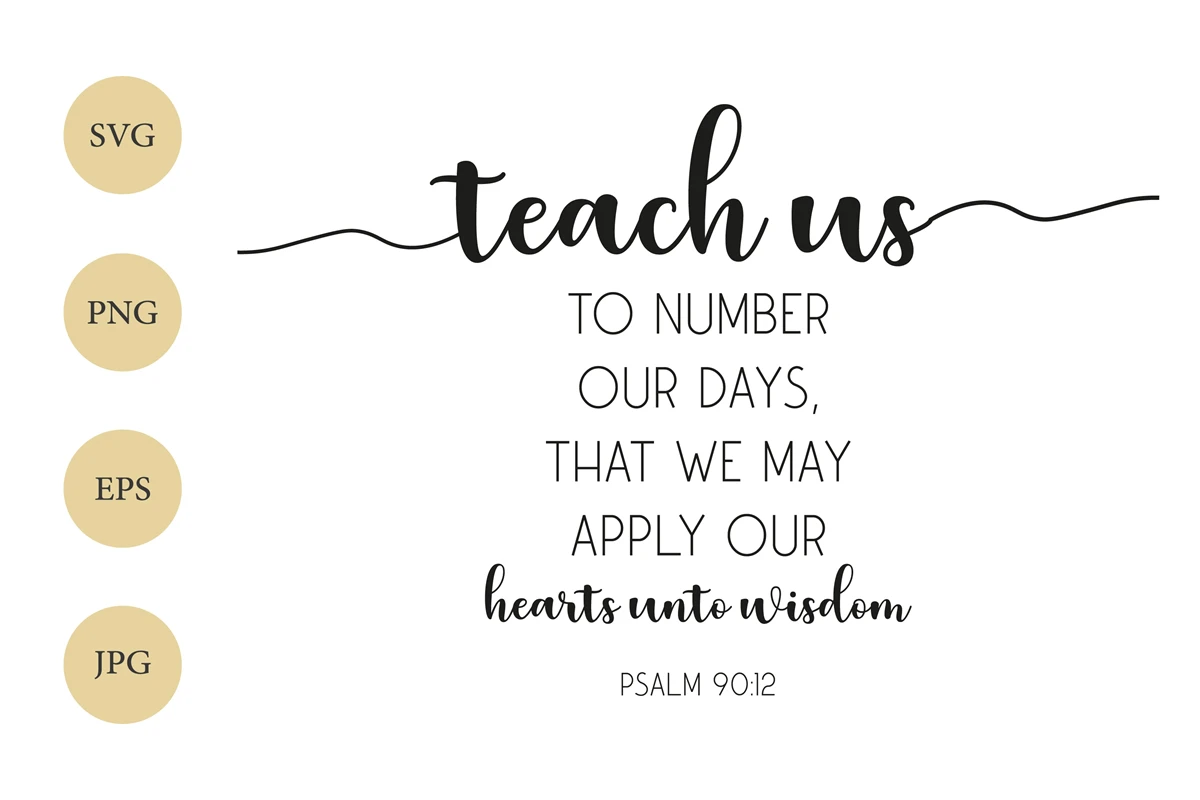 SVG
PNG
EPS
JPG
teach us
TO NUMBER
OUR DAYS,
THAT WE MAY
APPLY OUR
hearts unto wisdom
PSALM 90:12